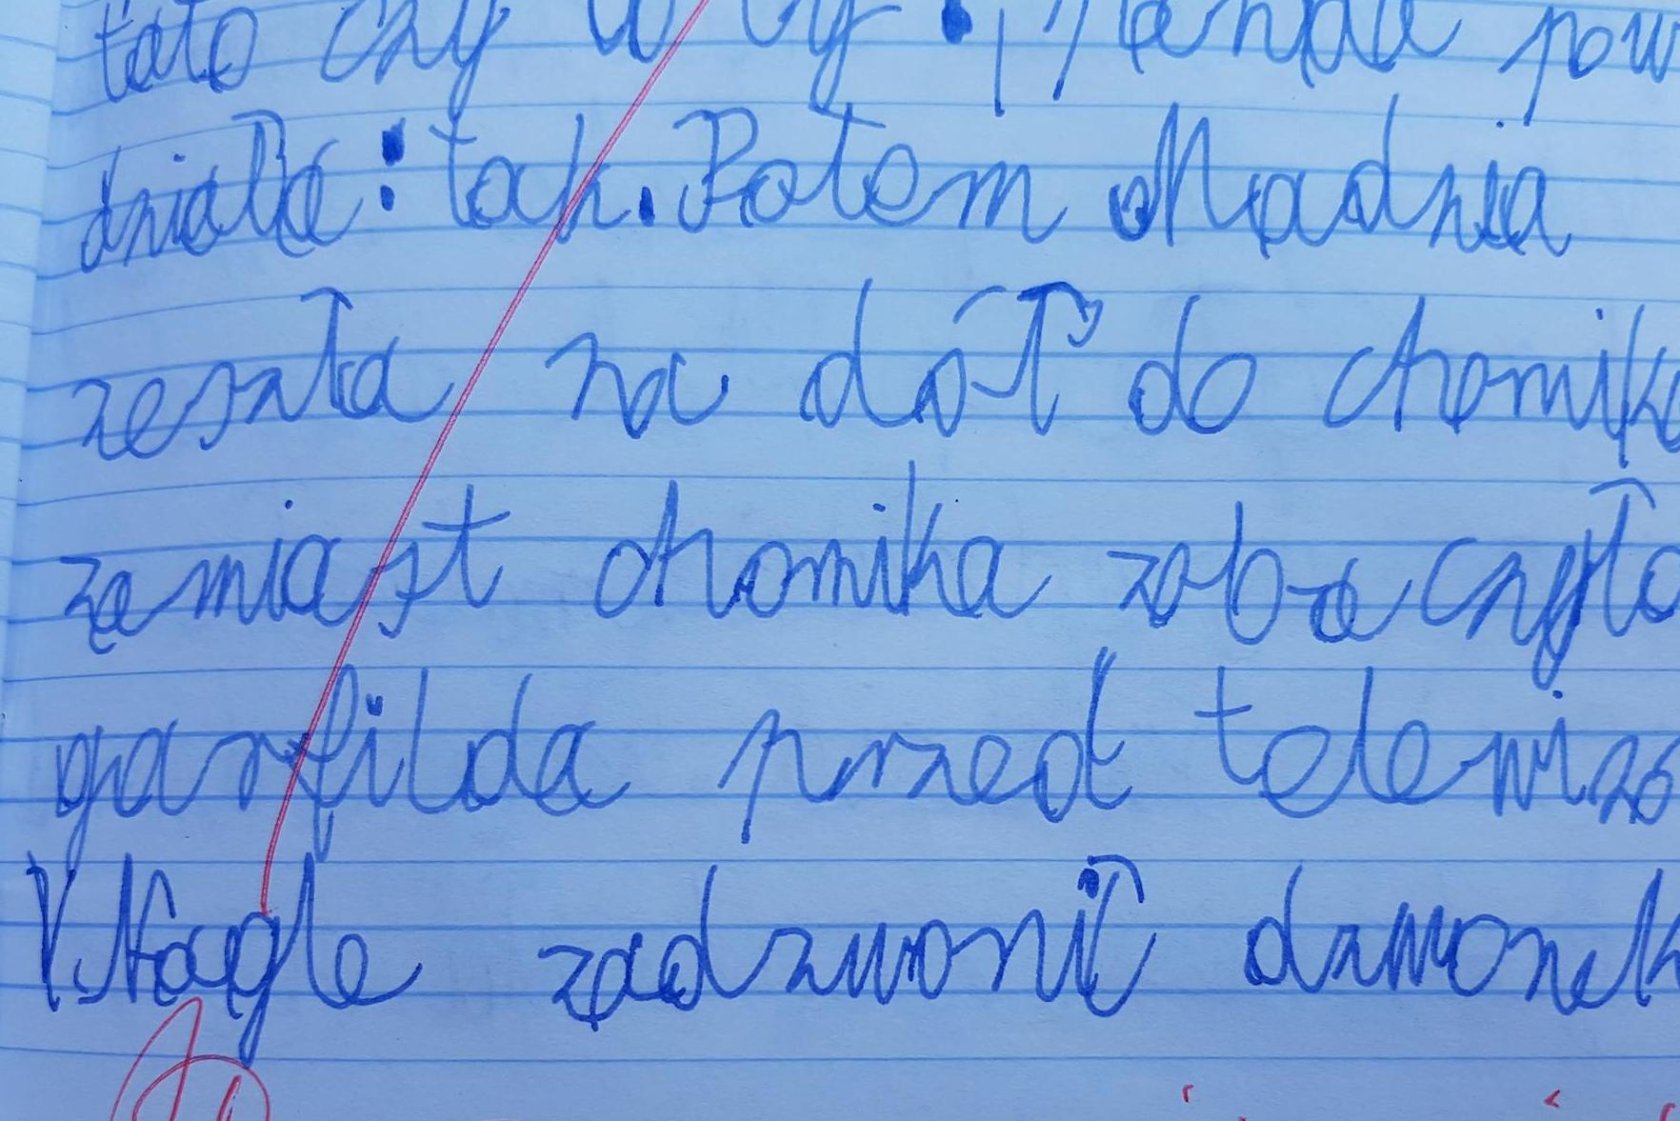 tato czy to ty : , panda pow
działa : tak. Potem Madzia
zeszła na dół do chomika
zamiast chomika zobaczyła
garfilda przed telewizo
V. Nagle zadzwonił dzwonek